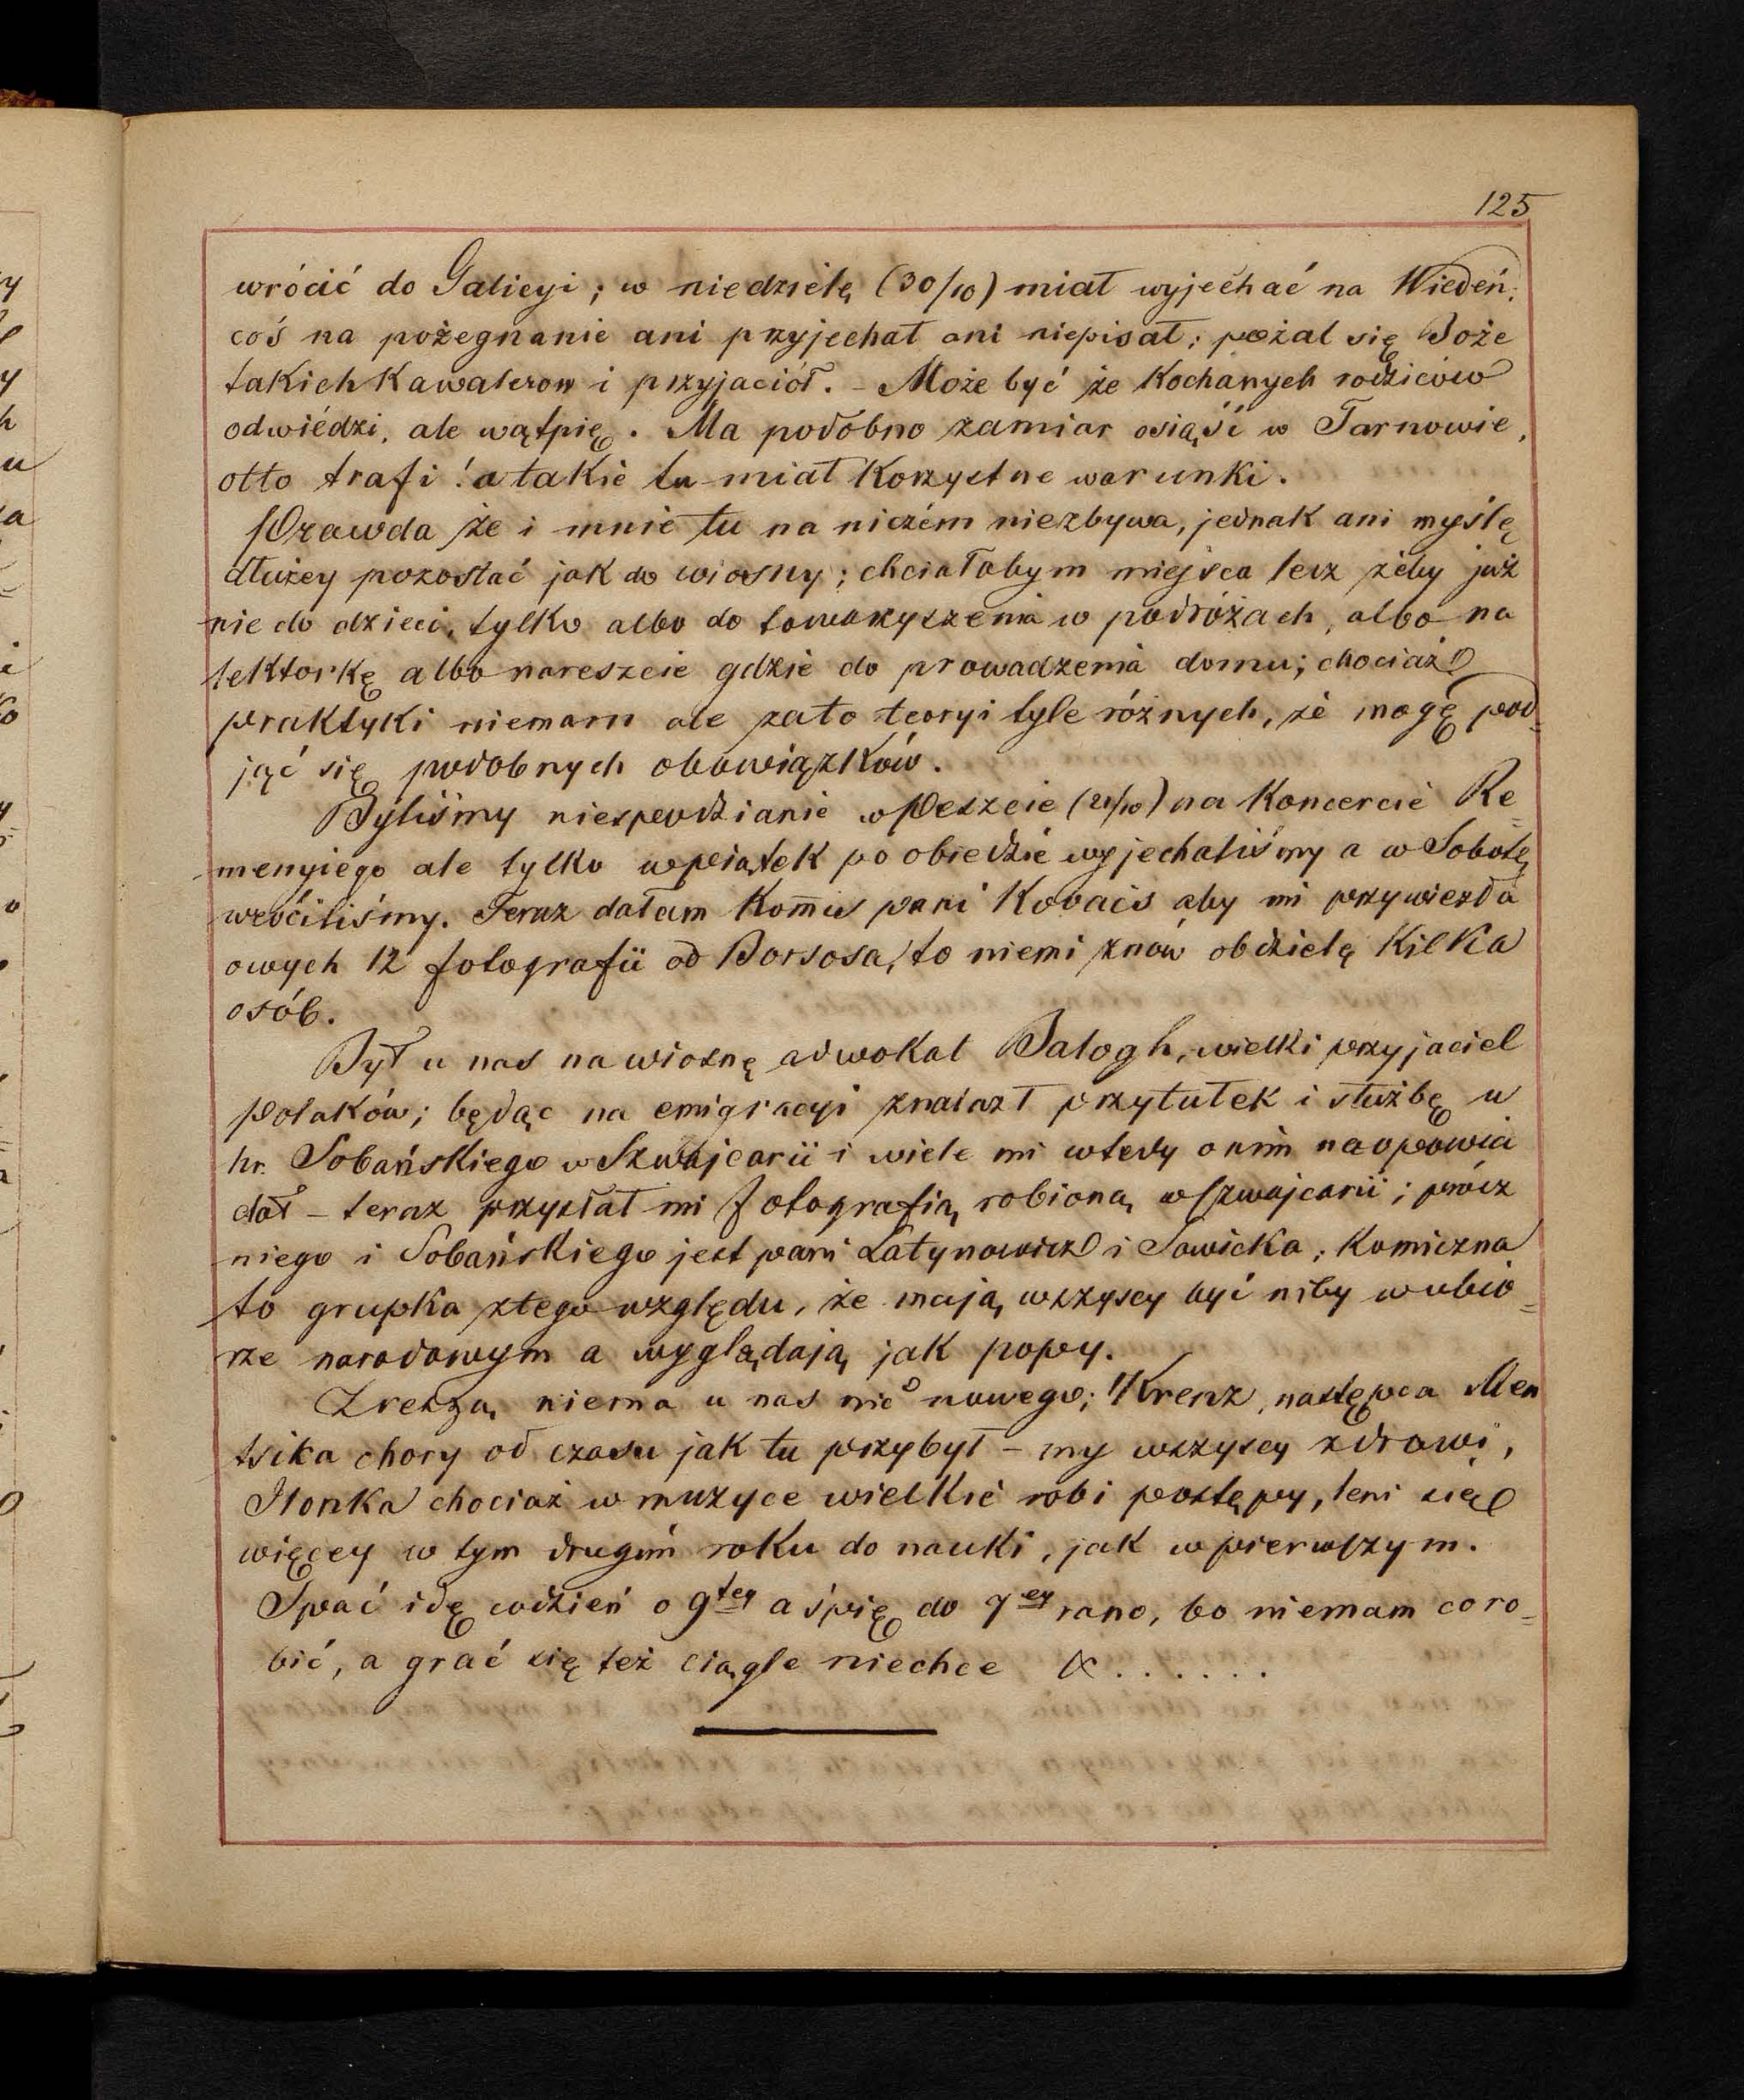 125
wrócić do Galicyi; w niedzielę (30/10) miał wyjechać na Wiedeń;
coś na pożegnanie ani przyjechał ani niepisał; pożal się Boże
takich Kawalerow i przyjaciół. – Może być że Kochanych rodziców
odwiédzi, ale wątpię. Ma podobno zamiar osiąść w Tarnowie,
otto trafi! a takie tu miał Korzystne warunki.
Prawda że i mnie tu na niczém niezbywa, jednak ani myślę
dłużey pozostać jak do wiosny; chciałabym miejsca lecz żeby już
nie do dzieci, tylko albo do towarzyszenia w podróżach, albo na
lektorkę albo nareszcie gdzie do prowadzenia domu; chociaż
praktyki niemam ale zato teoryi tyle różnych, że mogę pod=
jąć się podobnych obowiązków.
Byliśmy niespodzianie w Peszcie (21/10) na Koncercie Re=
menyiego ale tylko wpiątek po obiedzie wyjechaliśmy a w Sobotę
wróciliśmy. Teraz dałam Komis pani Kovacs aby mi przywiezła
owych 12 fotografii od Borsosa, to niemi znów obdzielę Kilka
osób.
Był u nas na wiosnę adwokat Balogh, wielki przyjaciel
polaków; będąc na emigracyi znalazł przytułek i służbę u
hr. Sobańskiego w Szwajcarii i wiele mi wtedy o nim naopowia
dał – teraz przysłał mi fotografią robioną w Szwajcarii; prócz
niego i Sobańskiego jest pani Łatynowicz i Sawicka; Komiczna
to grupka ztego względu, że mają wszyscy być niby w ubio=
rze narodowym a wyglądają jak popy.
Zresztą niema u nas nic nowego; Krenz, następca Men
tsika chory od czasu jak tu przybył – my wszyscy zdrowi,
Ilonka chociaż w muzyce wielkie robi postępy, leni się
więcey w tym drugim roku do nauki, jak w pierwszym.
Spać idę codzień o 9tey a śpię do 7ey rano, bo niemam co ro=
bić, a grać się też ciągle niechce & . . . . . .